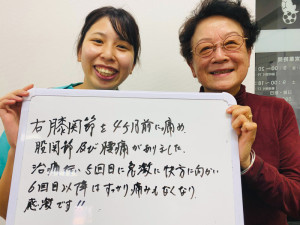 右膝関節を4ヶ月前に痛め、
股関節及び腰痛がありました。
治療を 5回目に急激に快方に向かい
6回目以降はすっかり痛みもなくなり
感激です!!